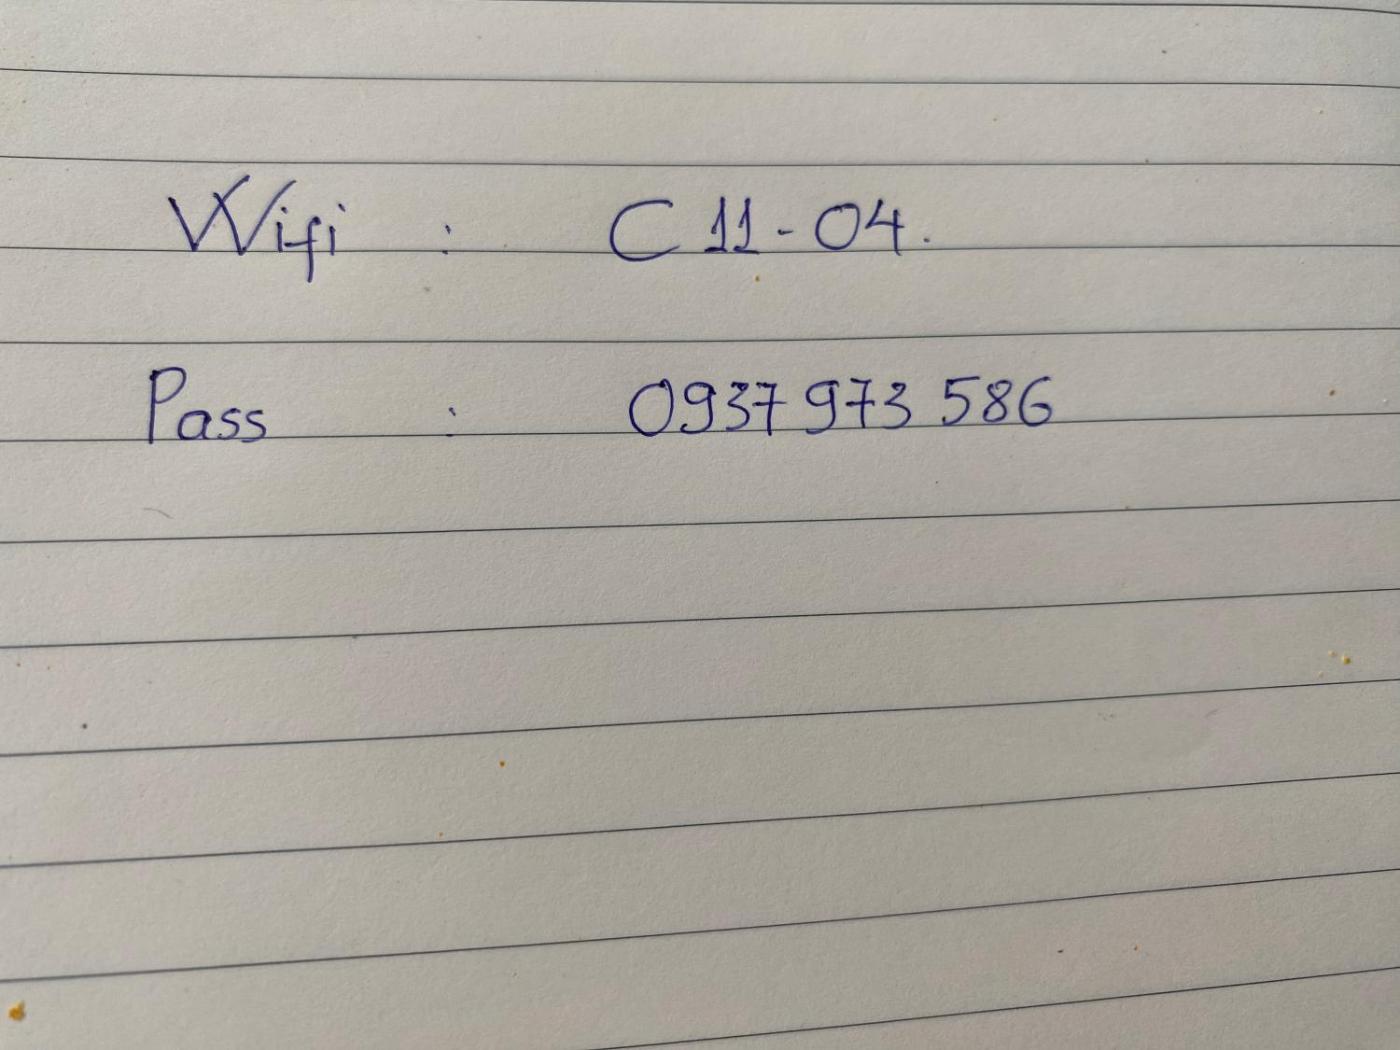 Wifi : C11-04.
Pass : 0937 973 586